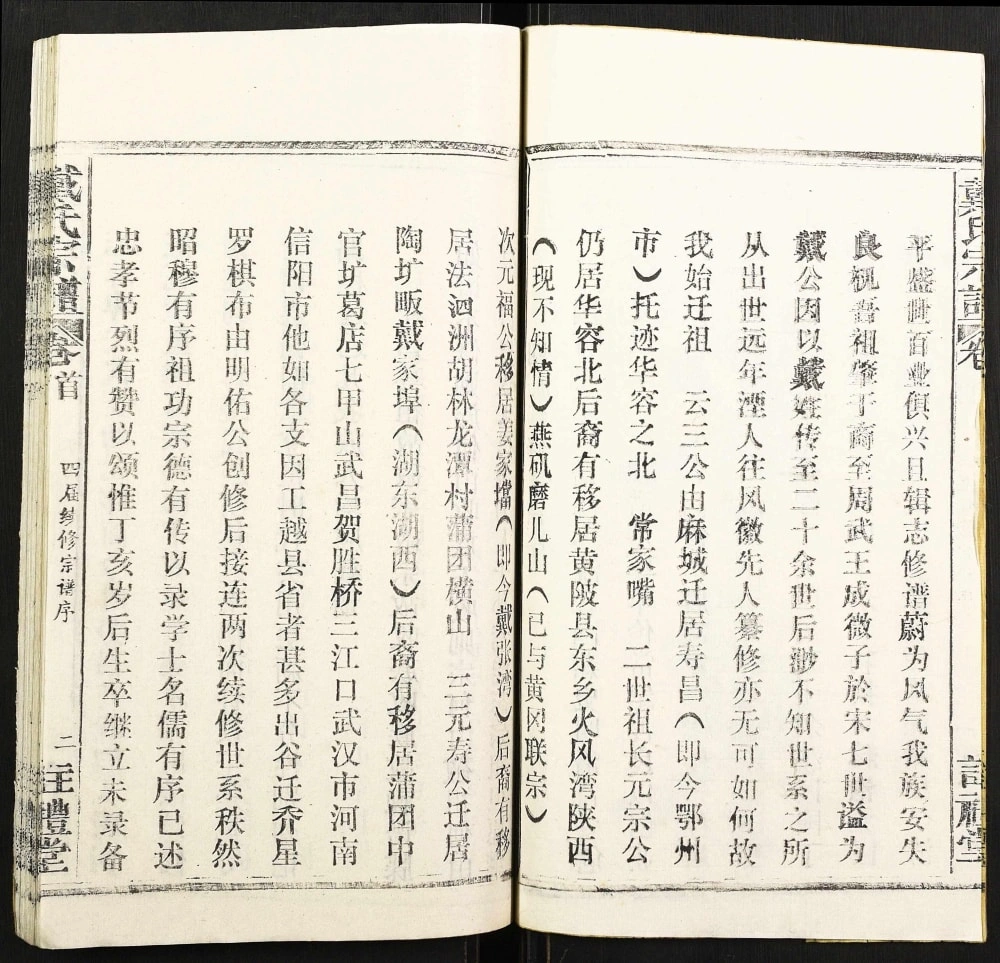 平盛世百业俱兴且辑志修谱蔚为风气我族安失
良觇吾祖肇于商至周武王成微子於宋七世谥为
戴公因以戴姓传至二十余世后渺不知世系之所
从出世远年湮人往风徽先人纂修亦无可如何故
我始迁祖　云三公由麻城迁居寿昌（即今鄂州
市）托迹华容之北　常家嘴　二世祖长元宗公
仍居华容北后裔有移居黄陂县东乡火风湾陕西
（现不知情）燕矶磨儿山（已与黄冈联宗）
次元福公移居姜家垱（即今戴张湾）后裔有移
居法泗洲胡林龙潭村蒲团横山　三元寿公迁居
陶圹畈戴家埠（湖东湖西）后裔有移居蒲团中
官圹葛店七甲山武昌贺胜桥三江口武汉市河南
信阳市他如各支因工越县省者甚多出谷迁乔星
罗棋布由明佑公创修后接连两次续修世系秩然
昭穆有序祖功宗德有传以录学士名儒有序已述
忠孝节烈有赞以颂惟丁亥岁后生卒继立未录备
戴氏宗谱 卷首　四届续修宗谱序　二